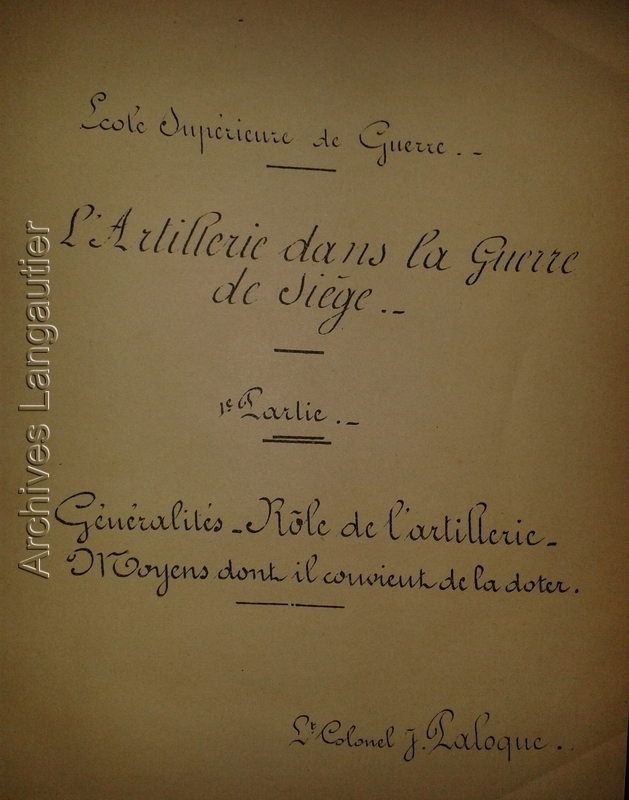 Ecole Supérieure de Guerre. --
L'Artillerie dans la Guerre
de Siège. --
1e Partie. --
Généralités - Rôle de l'artillerie -
Moyens dont il convient de la doter.
Lt Colonel J. Paloque.
Archives Langautier